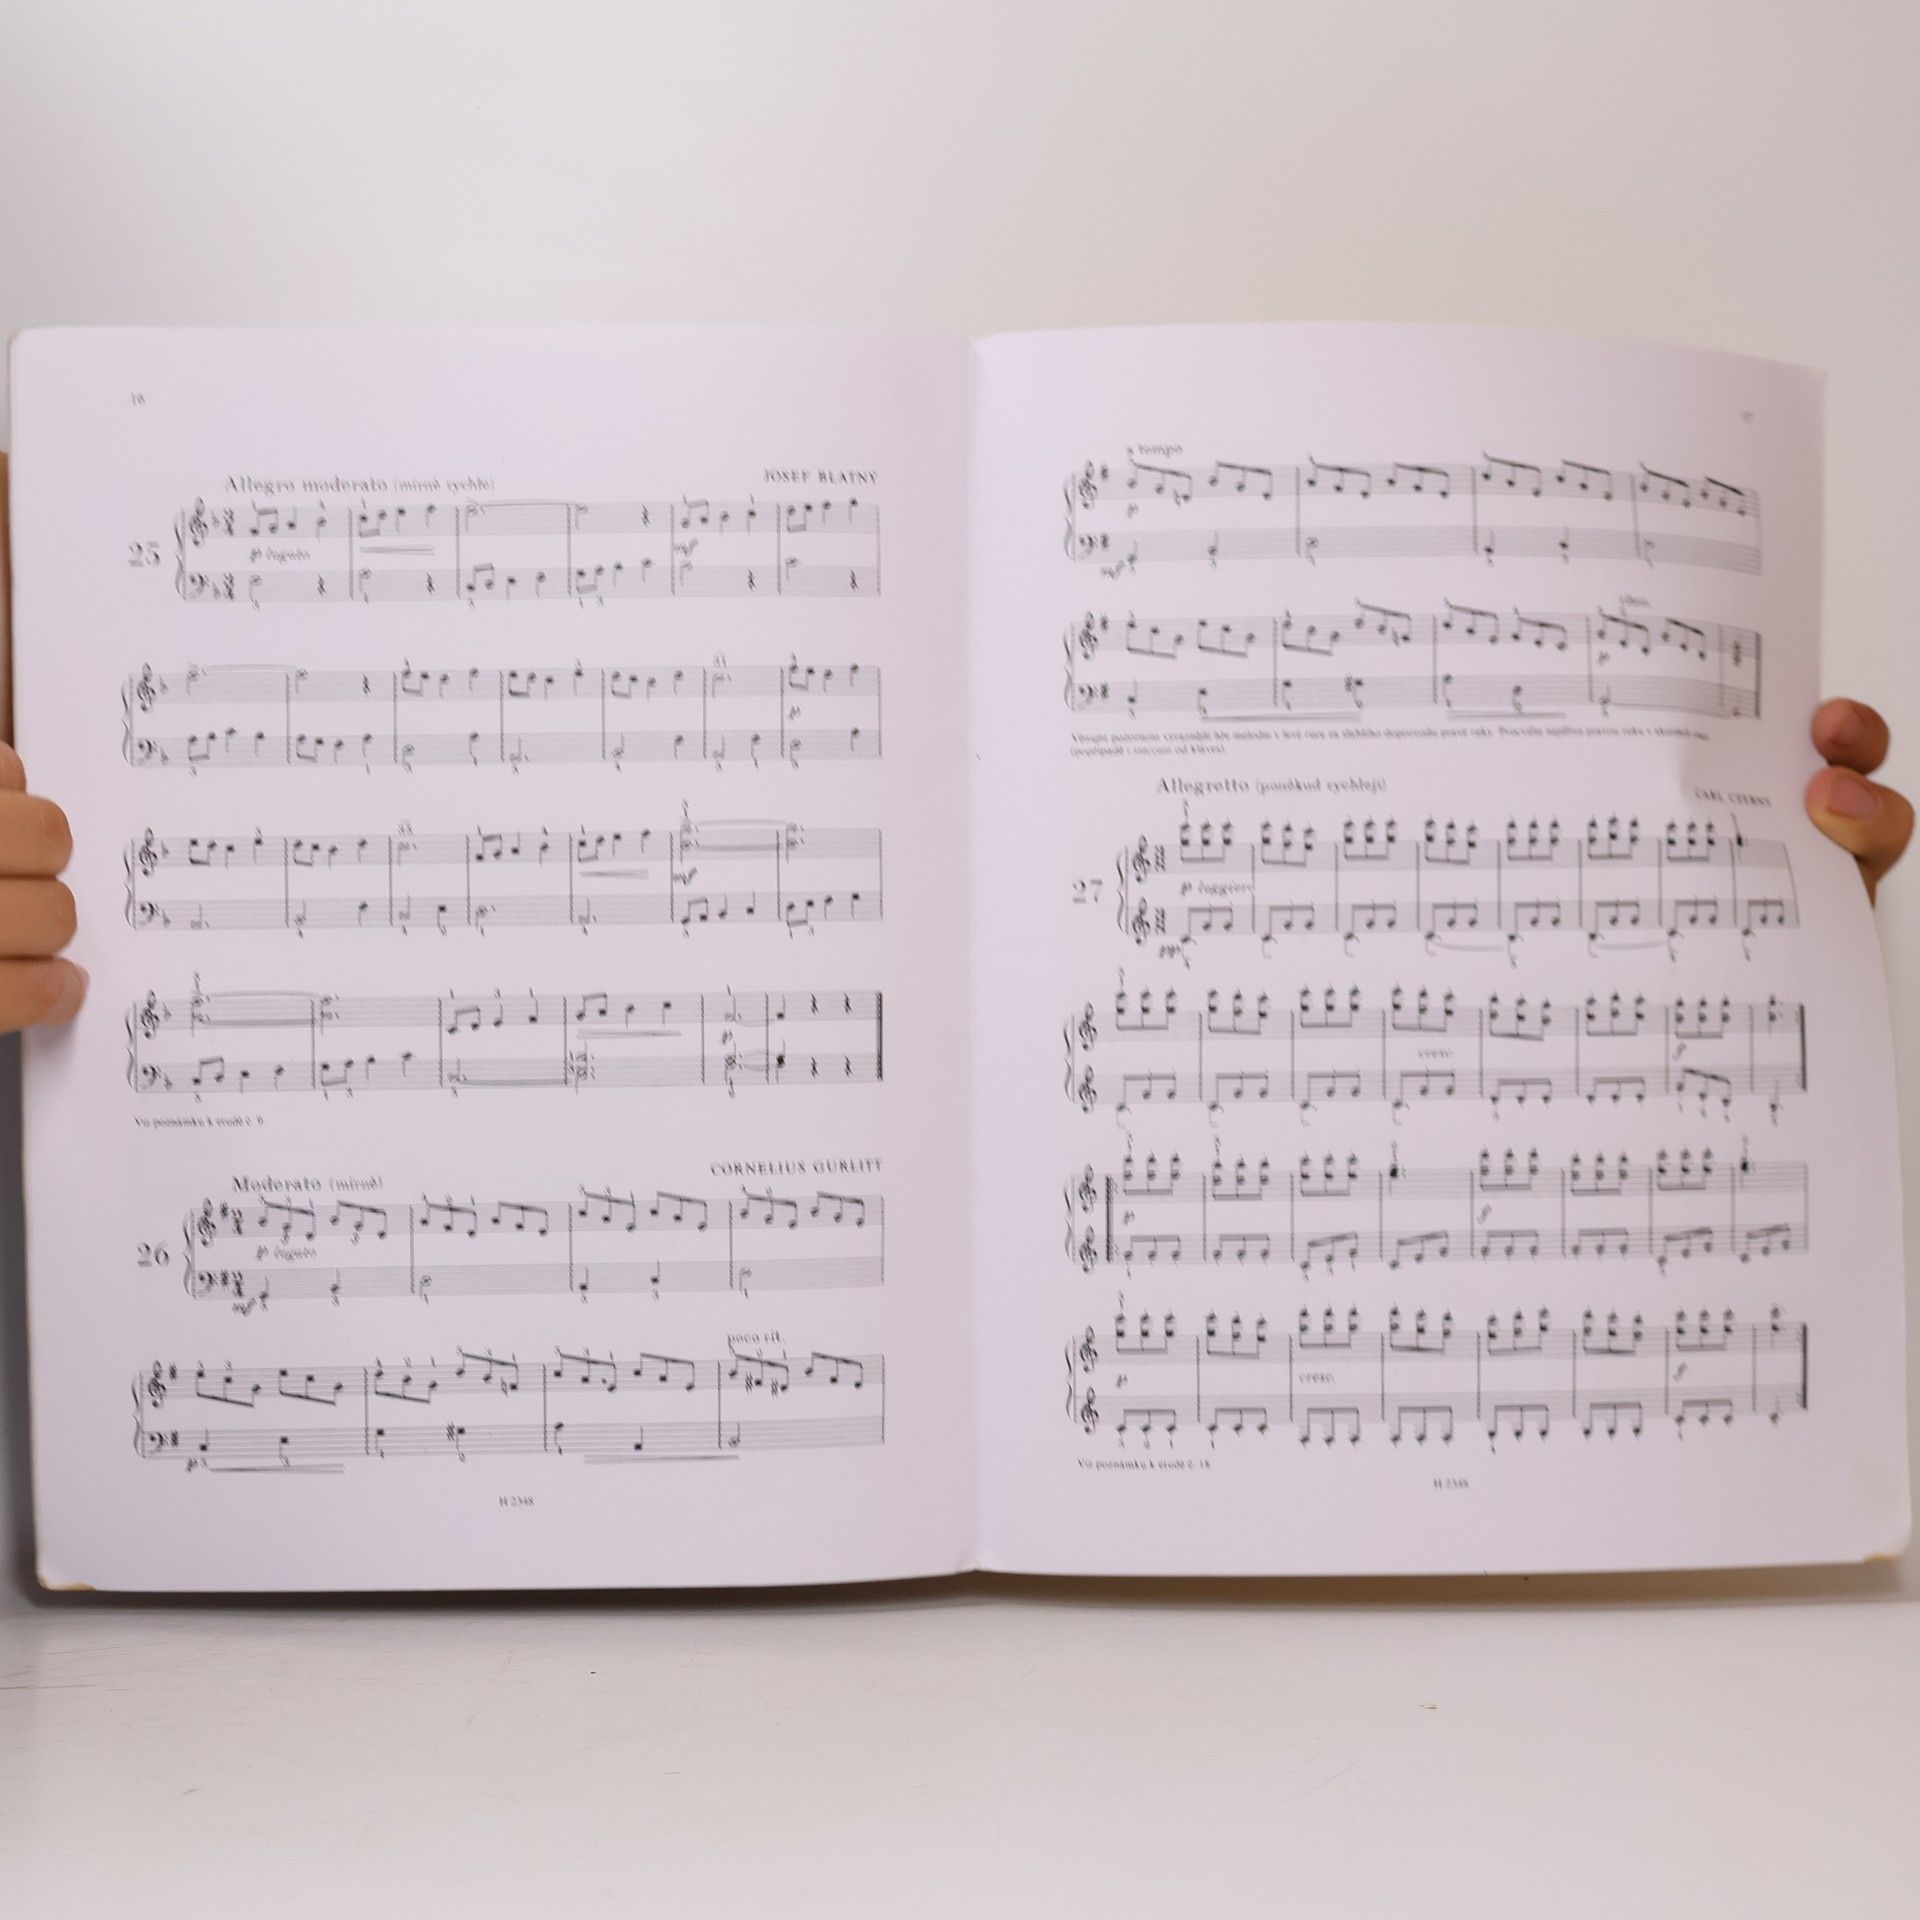 16
Allegro moderato (mírně rychle)
JOSEF BLATNÝ
25
p legato
mf
p
mf
p
Viz poznámku k etudě č. 6.
Moderato (mírně)
CORNELIUS GURLITT
26
p legato
mf
poco rit.
p
H 2348
a tempo
p
mf
p
Věnujte pozornost výrazné hře melodie v levé ruce
(popřípadě i
Allegretto (poněkud rychleji)
CARL CZERNY
27
p leggiero
pp
cresc.
f
p
f
p
cresc.
f
Viz poznámku k etudě č. 18.
H 2348